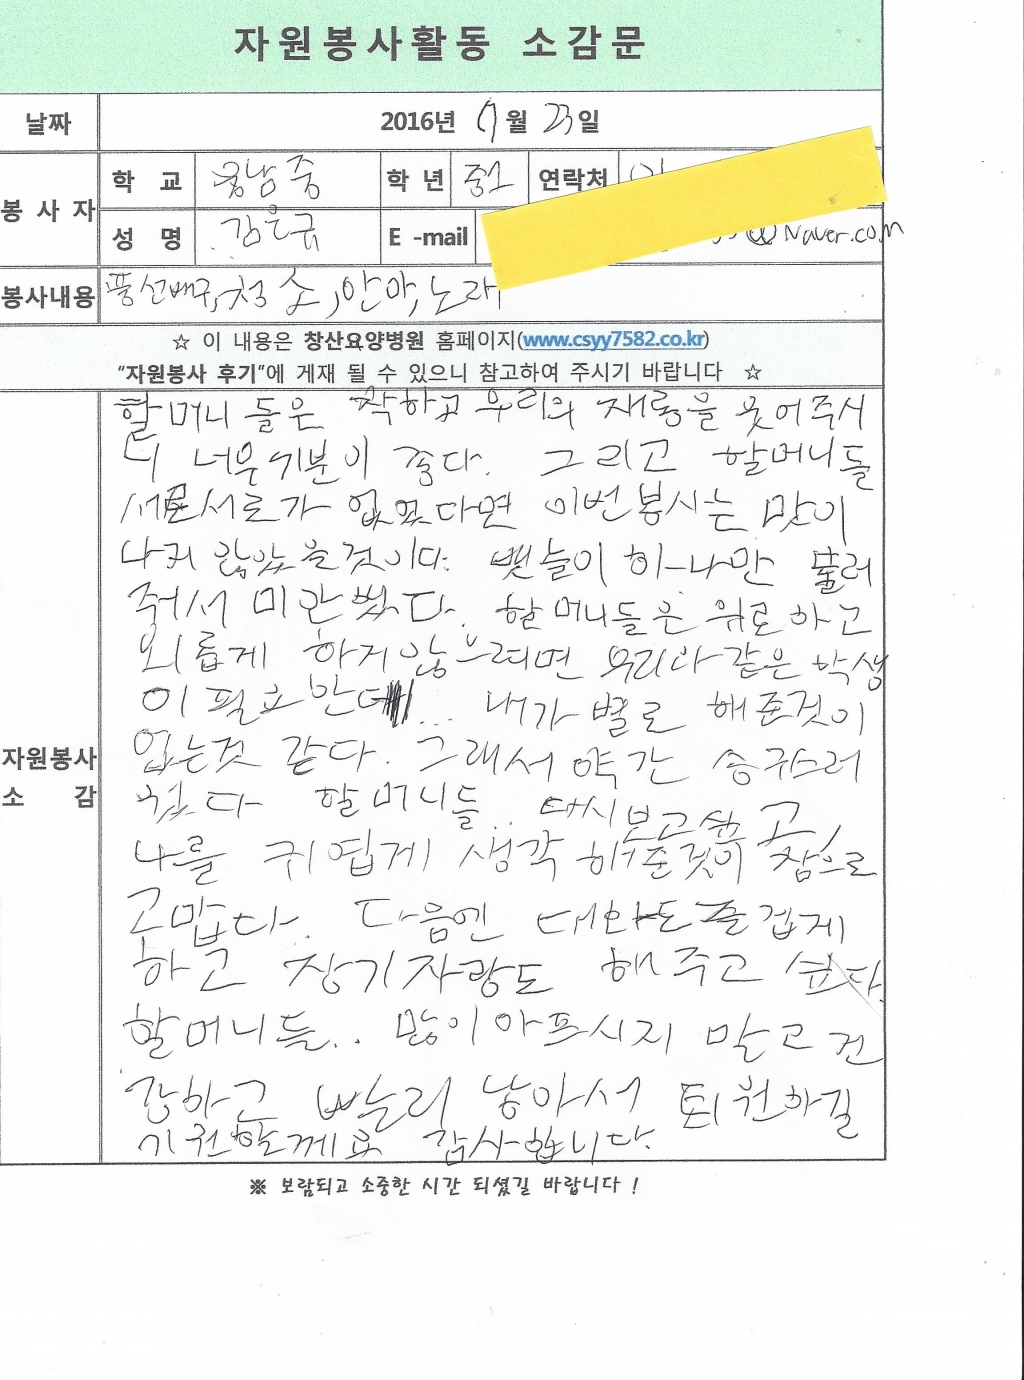 자원봉사활동 소감문
날짜 2016년 7월 23일
봉사자
학 교 웅남중 학년 중1 연락처
성 명 김은규 E -mail @Naver.com
봉사내용 풍선배구, 청소, 안마, 노래
☆ 이 내용은 창산요양병원 홈페이지(www.csyy7582.co.kr)
“자원봉사 후기”에 게재 될 수 있으니 참고하여 주시기 바랍니다 ☆
자원봉사
소 감
할머니 들은 착하고 우리의 재롱을 웃어주시
니 너무기분이 좋다. 그리고 할머니들
서로가 없었다면 이번봉사는 많이
나지 않았을것이다. 하나만 불러
줘서 미안했다. 할머니들은 위로하고
외롭게 하게않으려면 우리과같은 학생
이 필요한데 ... 내가 별로 해준것이
없는것 같다. 그래서 약간 송구스러
웠다 할머니들.. 다시보고싶고,
나를 귀엽게 생각해준것이 참으로
고맙다. 다음엔 대화도 즐겁게
하고 장기자랑도 해주고 싶다.
할머니들.. 많이아프시지 말고 건
강하고 빨리 낳아서 퇴원하길
기원할께요 감사합니다.
※ 보람되고 소중한 시간 되셨길 바랍니다 !